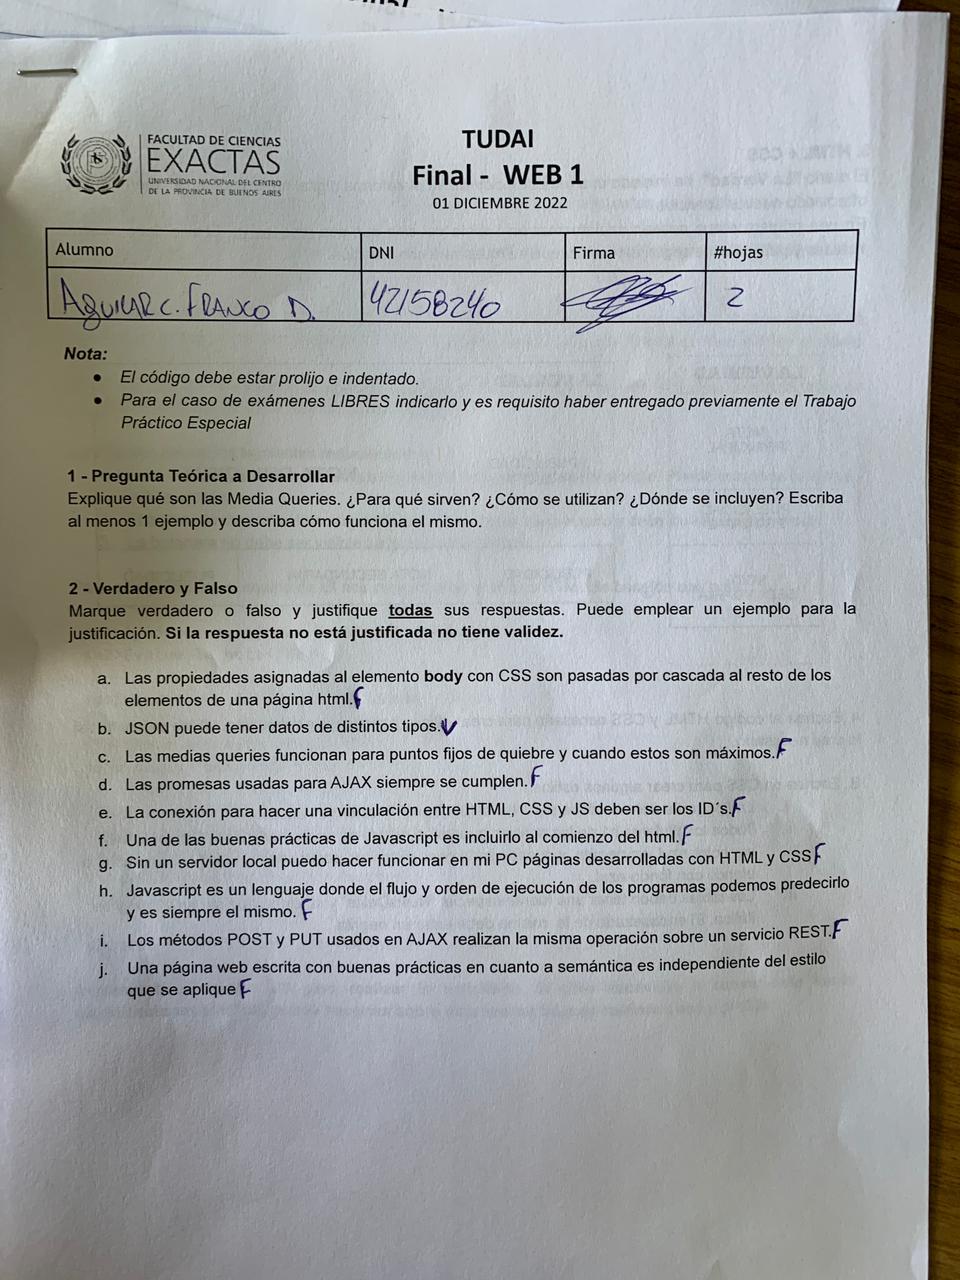 TUDAI
FACULTAD DE CIENCIAS
EXACTAS
UNIVERSIDAD NACIONAL DEL CENTRO
DE LA PROVINCIA DE BUENOS AIRES
Final - WEB 1
01 DICIEMBRE 2022
Alumno DNI Firma #hojas
AGUILAR C. FRANCO D. 42158240 2
Nota:
● El código debe estar prolijo e indentado.
● Para el caso de exámenes LIBRES indicarlo y es requisito haber entregado previamente el Trabajo
Práctico Especial
1 - Pregunta Teórica a Desarrollar
Explique qué son las Media Queries. ¿Para qué sirven? ¿Cómo se utilizan? ¿Dónde se incluyen? Escriba
al menos 1 ejemplo y describa cómo funciona el mismo.
2 - Verdadero y Falso
Marque verdadero o falso y justifique todas sus respuestas. Puede emplear un ejemplo para la
justificación. Si la respuesta no está justificada no tiene validez.
a. Las propiedades asignadas al elemento body con CSS son pasadas por cascada al resto de los
elementos de una página html. F
b. JSON puede tener datos de distintos tipos. V
c. Las medias queries funcionan para puntos fijos de quiebre y cuando estos son máximos. F
d. Las promesas usadas para AJAX siempre se cumplen. F
e. La conexión para hacer una vinculación entre HTML, CSS y JS deben ser los ID´s. F
f. Una de las buenas prácticas de Javascript es incluirlo al comienzo del html. F
g. Sin un servidor local puedo hacer funcionar en mi PC páginas desarrolladas con HTML y CSS F
h. Javascript es un lenguaje donde el flujo y orden de ejecución de los programas podemos predecirlo
y es siempre el mismo. F
i. Los métodos POST y PUT usados en AJAX realizan la misma operación sobre un servicio REST. F
j. Una página web escrita con buenas prácticas en cuanto a semántica es independiente del estilo
que se aplique F